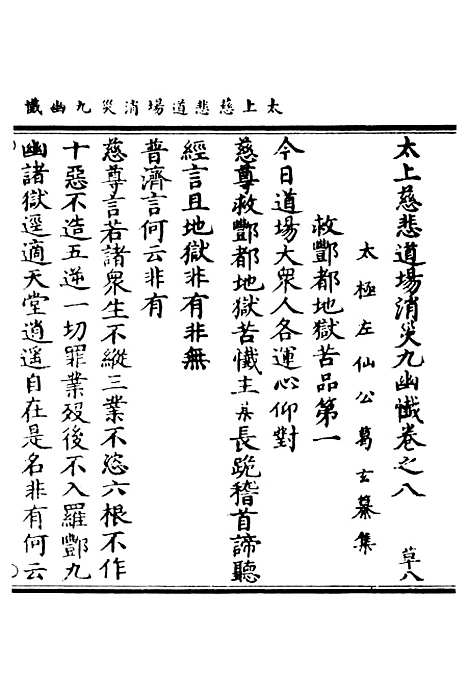 太上慈悲道場消災九幽懺
太上慈悲道場消災九幽懺卷之八 草八
太極左仙公葛玄纂集
救酆都地獄苦品第一
今日道場大衆人各運心仰對
慈尊救酆都地獄苦懺主某長跪稽首諦聽
經言且地獄非有非無
普濟言何云非有
慈尊言若諸衆生不縱三業不恣六根不作
十惡不造五逆一切罪業歿後不入羅酆九
幽諸獄逕適天堂逍遥自在是名非有何云